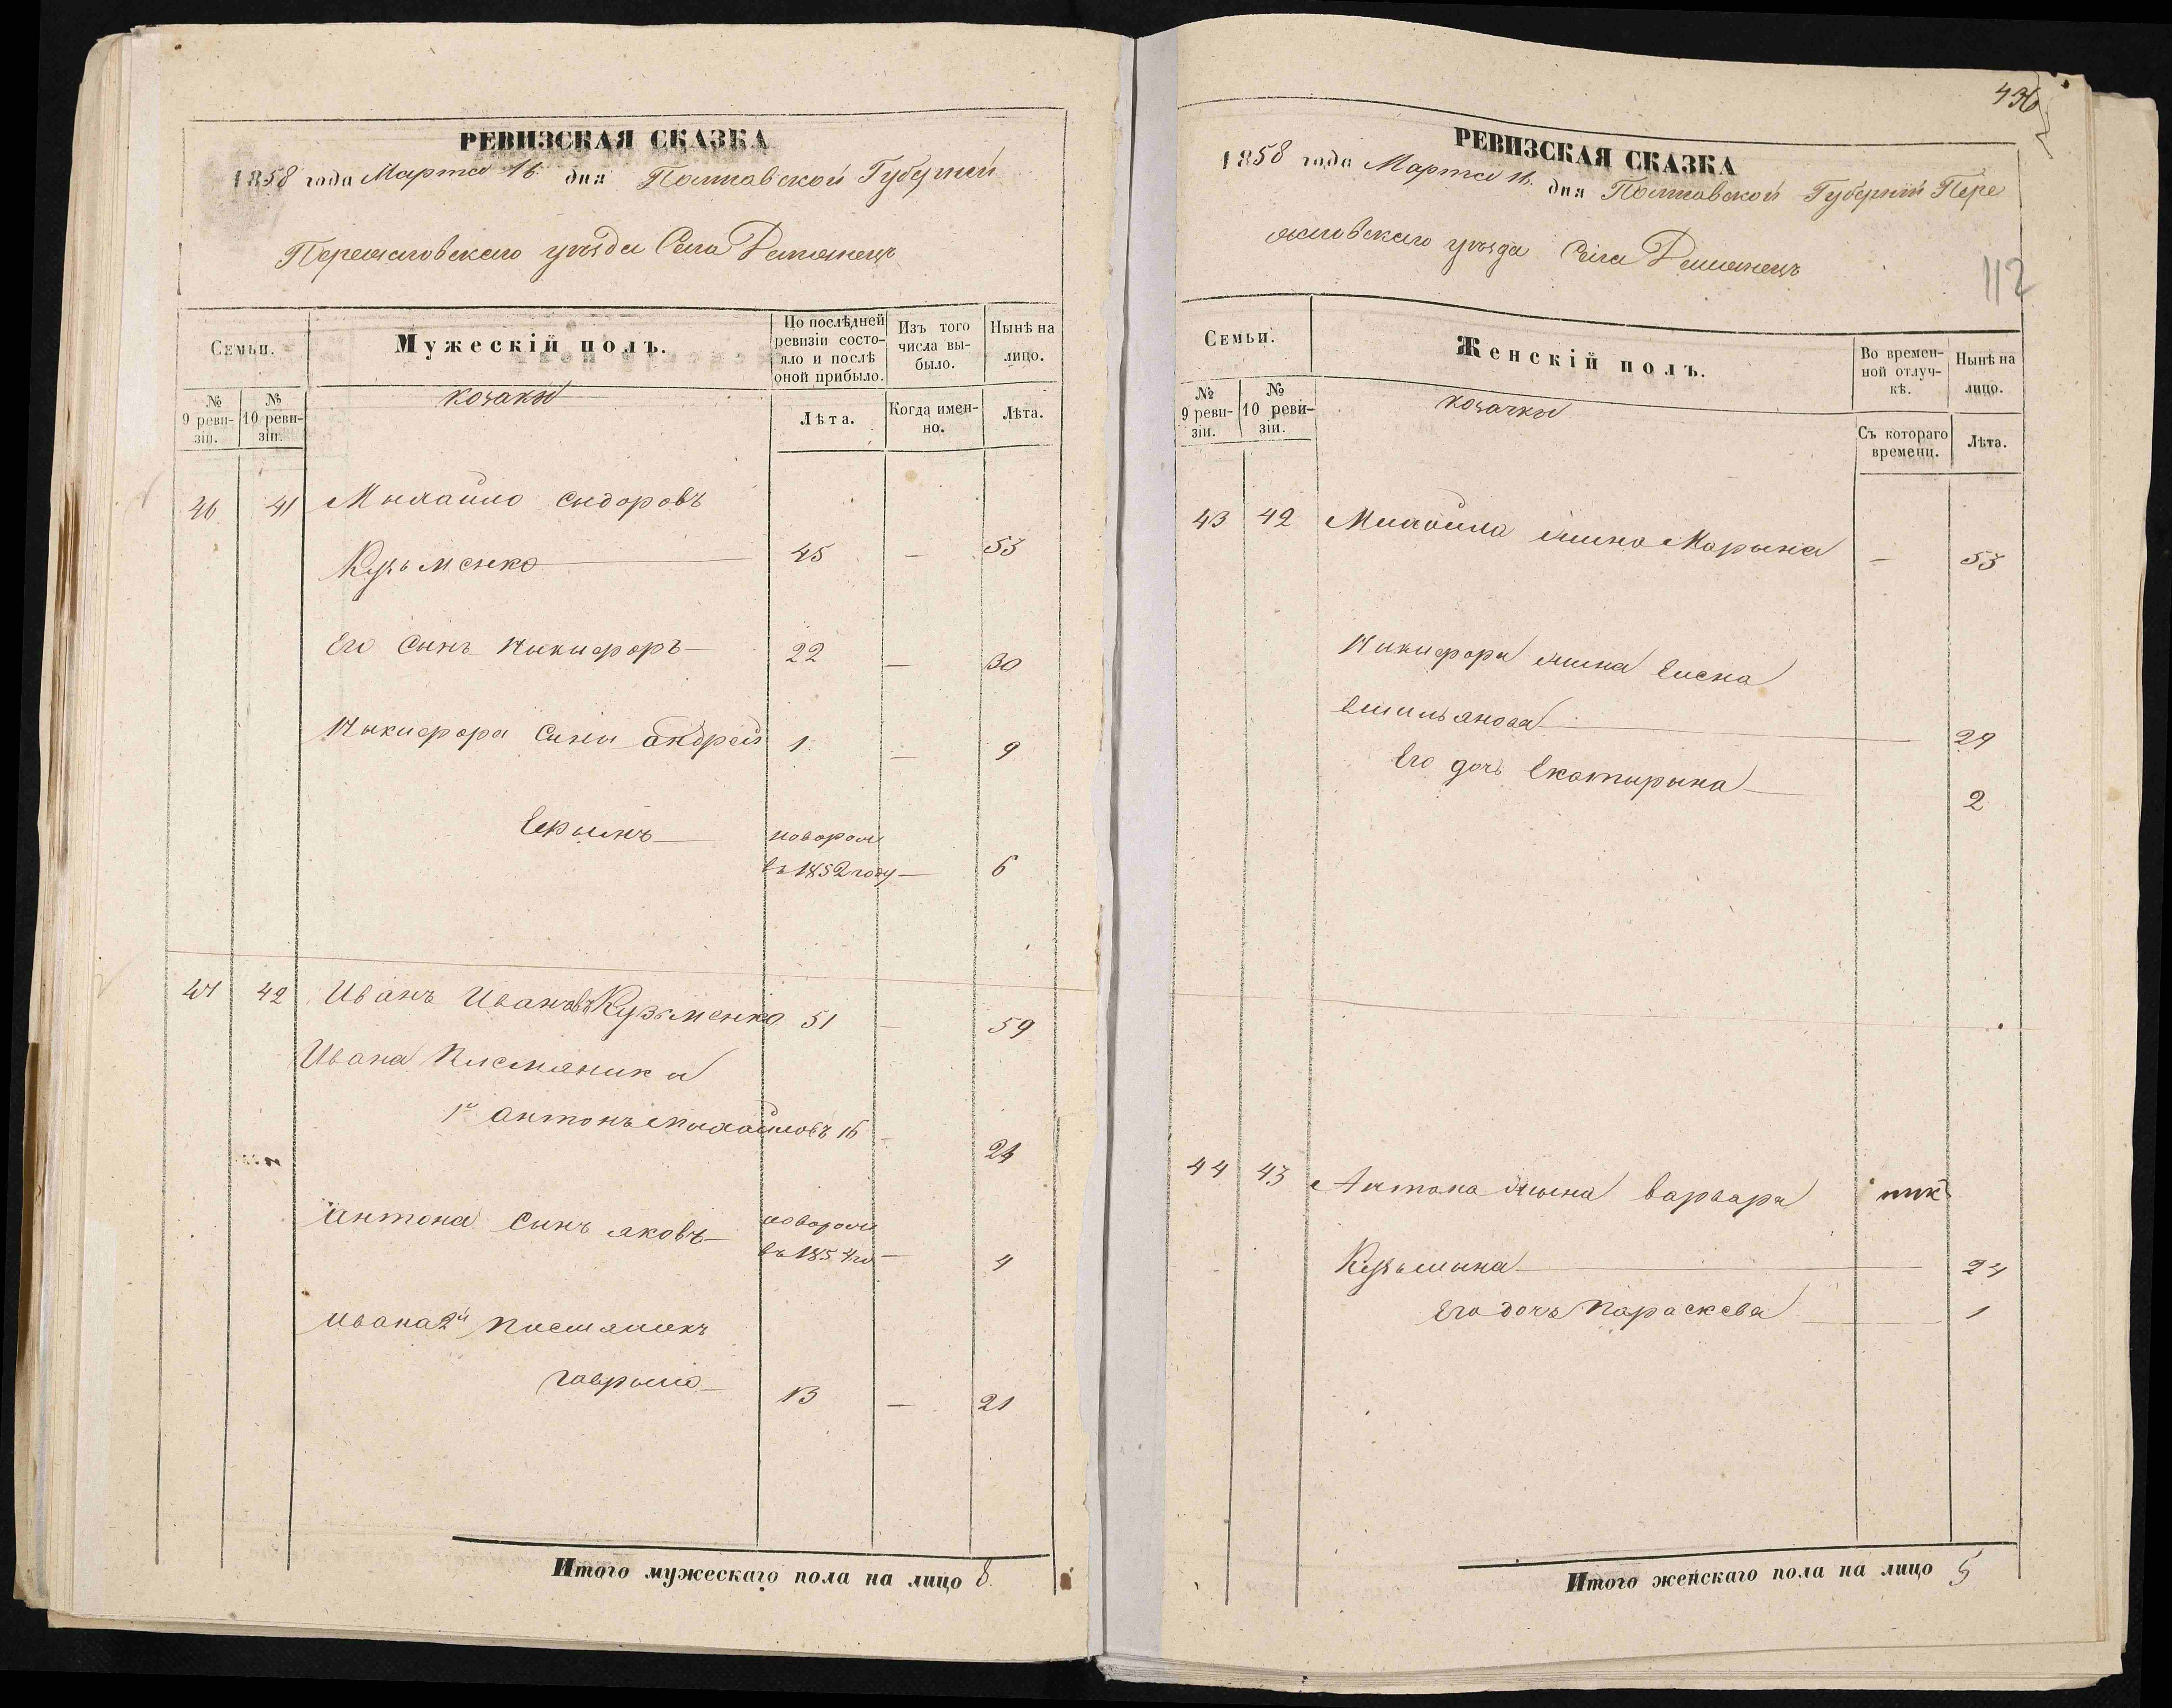 РЕВИЗСКАЯ СКАЗКА
1858 года Марта 16 дня Полтавской Губернии
Переяславского уѣзда Села
Семьи.
Мужескій полъ.
По послѣдней ревизіи состояло и послѣ оной прибыло.
Изъ того числа выбыло.
Нынѣ на лицо.
№ 9 ревизіи.
№ 10 ревизіи.
козаки
Лѣта.
Когда именно.
Лѣта.
46 41 Михайло Сидоровъ
Кузьменко 45 — 53
Его сынъ Никифоръ 22 — 30
Никифора сины андрей 1 — 9
новорож
въ 1852 году — 6
47 42 Иванъ Ивановъ Кузьменко 51 — 59
Ивана племяники
1й антонъ михайловъ 16 — 24
антона сынъ яковъ новорож
въ 1854 го — 4
ивана 2й племяникъ
гаврыло 13 — 21
Итого мужескаго пола на лицо 8.
436
РЕВИЗСКАЯ СКАЗКА
1858 года Марта 16. дня Полтавской Губернии Пере
яславского уѣзда Села
112
Семьи.
Женскій полъ.
Во временной отлучкѣ.
Нынѣ на лицо.
№ 9 ревизіи.
№ 10 ревизіи.
козачки
Съ котораго времени.
Лѣта.
43 42 Михайла жена Марына — 53
Никифора жина Елена
емильянова 29
Его дочь Екатырына 2
44 43 Антона жына варвара
Кузьмына 24
Его дочь Параскева 1
Итого женскаго пола на лицо 5